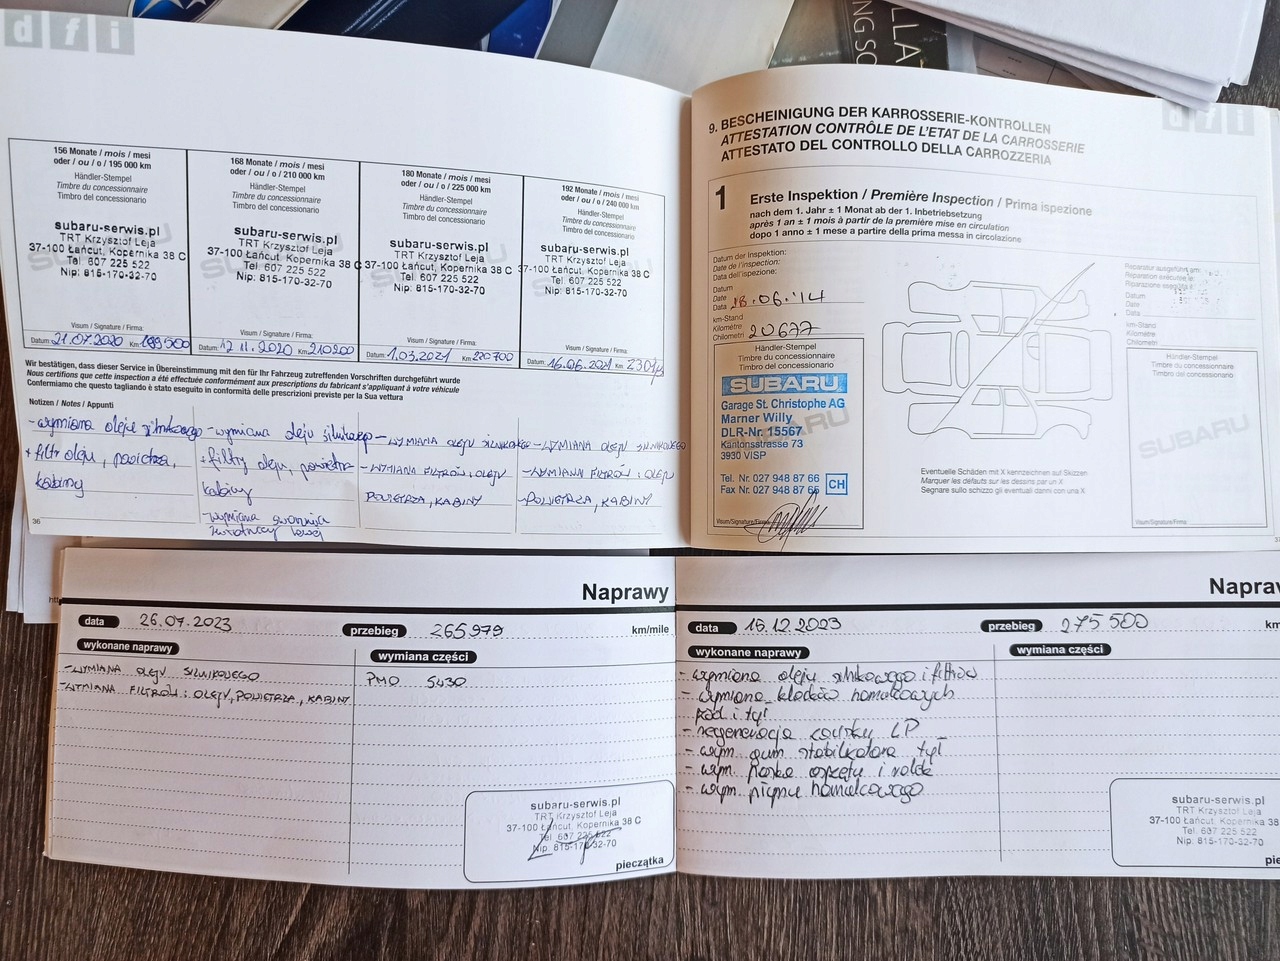 dfi
LLAT
NG SO
156 Monate / mois / mesi
oder / ou / o / 195 000 km
Händler-Stempel
Timbre du concessionnaire
Timbro del concessionario
subaru-serwis.pl
TRT Krzysztof Leja
37-100 Łańcut, Kopernika 38 C
Tel. 607 225 522
Nip: 815-170-32-70
Visum / Signature / Firma:
Datum: 21.07.2020 Km: 199500
168 Monate / mois / mesi
oder / ou / o / 210 000 km
Händler-Stempel
Timbre du concessionnaire
Timbro del concessionario
subaru-serwis.pl
TRT Krzysztof Leja
37-100 Łańcut, Kopernika 38 C
Tel. 607 225 522
Nip: 815-170-32-70
Visum / Signature / Firma:
Datum: 12 11.2020 Km: 210200
180 Monate / mois / mesi
oder / ou / o / 225 000 km
Händler-Stempel
Timbre du concessionnaire
Timbro del concessionario
subaru-serwis.pl
TRT Krzysztof Leja
37-100 Łańcut, Kopernika 38 C
Tel. 607 225 522
Nip: 815-170-32-70
Visum / Signature / Firma:
Datum: 1.03.2021 Km: 220700
192 Monate / mois / mesi
oder / ou / o / 240 000 km
Händler-Stempel
Timbre du concessionnaire
Timbro del concessionario
subaru-serwis.pl
TRT Krzysztof Leja
37-100 Łańcut, Kopernika 38 C
Tel. 607 225 522
Nip: 815-170-32-70
Visum / Signature / Firma:
Datum: 16.06.2021 Km:
Wir bestätigen, dass dieser Service in Übereinstimmung mit den für Ihr Fahrzeug zutreffenden Vorschriften durchgeführt wurde
Nous certifions que cette inspection a été effectuée conformément aux prescriptions du fabricant s'appliquant à votre véhicule
Confermiamo che questo tagliando è stato eseguito in conformità delle prescrizioni previste per la Sua vettura
Notizen / Notes / Appunti
- wymiana oleju silnikowego
+ filtr oleju, powietrza,
kabiny
- wymiana oleju silnikowego
+ filtry oleju, powietrza
kabiny
wymiana sworznia
zwrotnicy lewej
- WYMIANA OLEJU SILNIKOWEGO
- WYMIANA FILTRÓW: OLEJU
POWIETRZA, KABINY
- WYMIANA OLEJU SILNIKOWEGO
- WYMIANA FILTRÓW: OLEJU
- POWIETRZA, KABINY
36
dfi
9. BESCHEINIGUNG DER KARROSSERIE-KONTROLLEN
ATTESTATION CONTRÔLE DE L'ETAT DE LA CARROSSERIE
ATTESTATO DEL CONTROLLO DELLA CARROZZERIA
1 Erste Inspektion / Première Inspection / Prima ispezione
nach dem 1. Jahr ± 1 Monat ab der 1. Inbetriebsetzung
après 1 an ± 1 mois à partir de la première mise en circulation
dopo 1 anno ± 1 mese a partire della prima messa in circolazione
Datum der Inspektion:
Date de l'inspection:
Data dell'ispezione:
Datum
Date
Data 18.06.'14
km-Stand
Kilométre
Chilometri 20677
Händler-Stempel
Timbre du concessionnaire
Timbro del concessionario
SUBARU
Garage St. Christophe AG
Marner Willy
DLR-Nr. 15567
Kantonsstrasse 73
3930 VISP
Tel. Nr. 027 948 87 66
Fax Nr. 027 948 87 65 CH
Visum/Signature/Firma:
Reparatur ausgeführt am:
Reparation exécutée le:
Riparazione eseguita il:
Datum
Date
Data
km-Stand
Kilométre
Chilometri
Händler-Stempel
Timbre du concessionnaire
Timbro del concessionario
SUBARU
Visum/Signature/Firma:
Eventuelle Schäden mit X kennzeichnen auf Skizzen
Marquer les défauts sur les dessins par un X
Segnare sullo schizzo gli eventuali danni con una X
Naprawy
data 26.07.2023 przebieg 265979 km/mile
wykonane naprawy wymiana części
- WYMIANA OLEJU SILNIKOWEGO
- WYMIANA FILTRÓW: OLEJU, POWIETRZA, KABINY
PMO 5W30
subaru-serwis.pl
TRT Krzysztof Leja
37-100 Łańcut, Kopernika 38 C
Tel. 607 225 522
Nip: 815-170-32-70
pieczątka
Napraw
data 15.12.2023 przebieg 275 500 km
wykonane naprawy wymiana części
- wymiana oleju silnikowego i filtrów
- wymiana klocków hamulcowych
przód i tył
- regeneracja zacisku LP
- wym. gum stabilizatora tył
- wym. paska osprzętu i rolek
- wym. płynu hamulcowego
subaru-serwis.pl
TRT Krzysztof Leja
37-100 Łańcut, Kopernika 38 C
Tel. 607 225 522
Nip: 815-170-32-70
pie